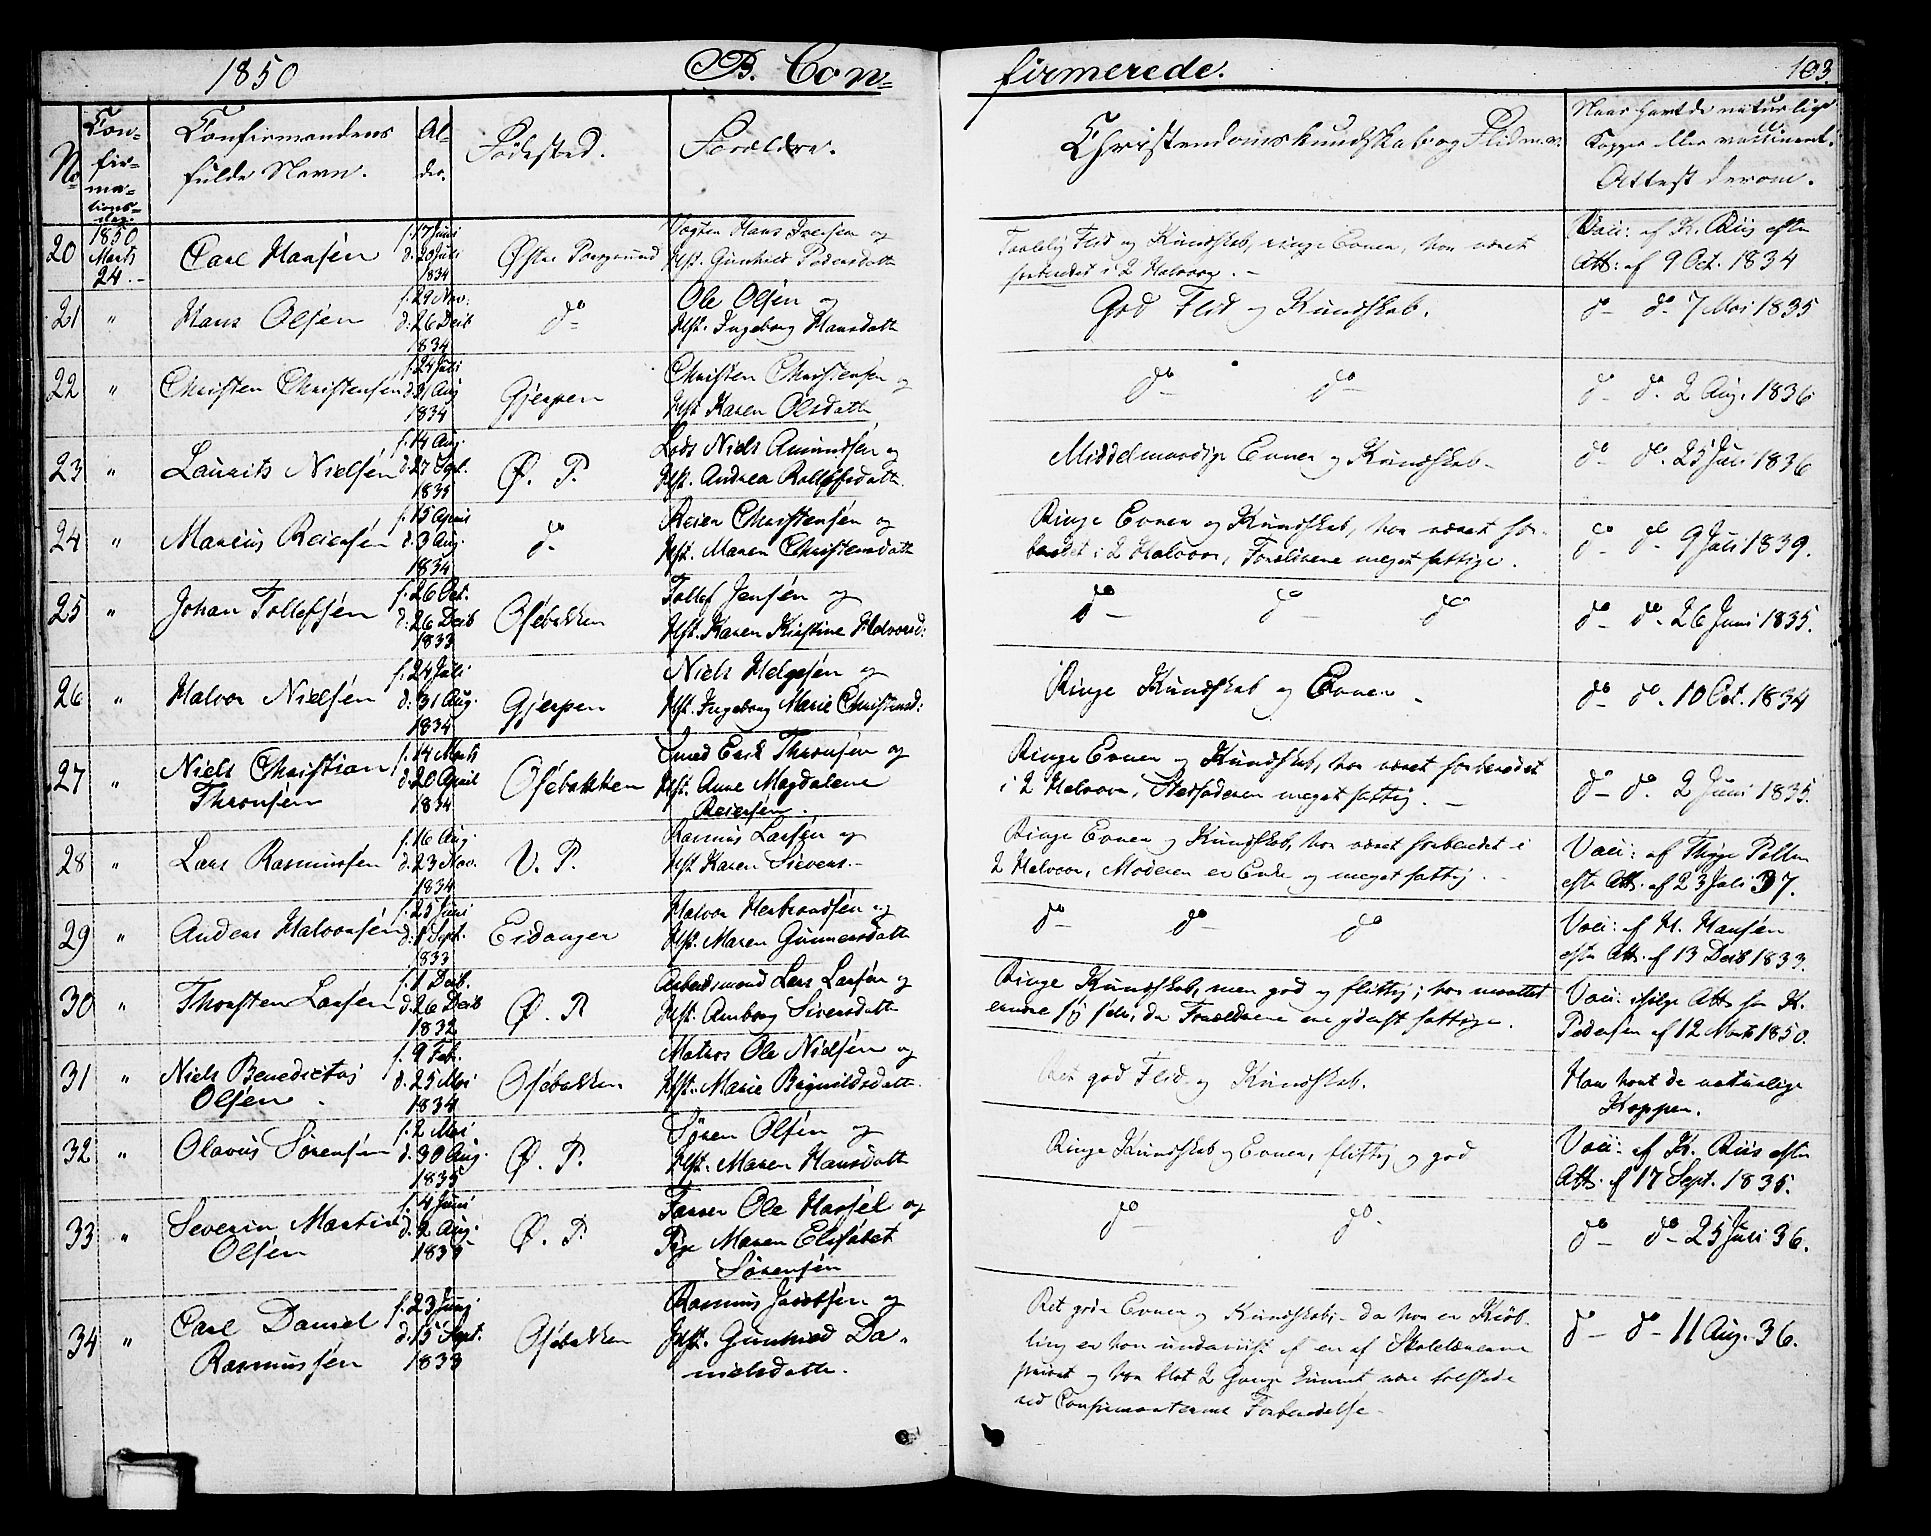 1850 B. Con=
firmerede. 103.
No Con=
fir=
ma=
tions=
dag. Confirmandens
fulde Navn. Al-
der. Fødested. Forældre. Christendomskundskab og Flid m.v. Naar havt de naturlige
Kopper eller vaccineret.
Attest derom.
20 1850
Marts
24.- Carl Hansén f. 17 Juni
d. 20 Juli
1834 Østre Porsgrund Vogter Hans Iversen og
Hst. Gunhild Pedersdatt Taalelig Flid og Kundskab, ringe Evner, har været
forberedet i 2 Halvaar. - Vacc: af K. Riis efter
Att: af 9 Oct. 1834
21 " Hans Olsén f. 29 Nov.
d. 26 Decb
1834 do Ole Olsén og
Hst. Ingeborg Hansdatt God Flid og Kundskab. do - do 7 Mai 1835
22 " Christen Christensén f. 24 Juli
d. 31 Aug
1834 Gjerpen Christen Christensen og
Hst Karen Olsdatt do do do - do. 2 Aug. 1836
23 " Laurits Nielsén f. 14 Aug.
d. 27 Spt.
1835 Ø. P. Lods Niels Amundsén og
Hst. Andrea Rolfsdatt. Middelmaadige Evner og Kundskab do - do. 25 Juli 1836
24 " Marcus Reiersén f. 15 April
d. 3 Aug.
1834 do Reier Christensén og
Hst. Maren Christensdatt Ringe Evner og Kundskab, har været for-
beredet i 2 Halvaar, Forældrene meget fattige. do - do 9 Juli 1839.
25 " Johan Tollefsén f. 26 Oct.
d. 26 Decb
1833 Osebakken Tollef Jensén og
Hst. Karen Kirstine Halvorsd: do - do do do - do - 26 Juni 1835.
26 " Halvor Nielsén f. 24 Juli
d. 31 Aug.
1834 Gjerpen Niels Helgesén og
Hst. Ingeborg Marie Christensd: Ringe Kundskab og Evner - do - do. 10 Oct. 1834
27 " Niels Christian
Thronsén f. 14 Marts
d. 20 April
1834 Osebakken Smed Erik Thronsén og
Hst. Anne Magdalene
Reiersén. Ringe Evner og Kundskab, har været forberedet
i 2 Halvaar, Stedfaderen meget fattig. - do - do. 2 Juni 1835.
28 " Lars Rasmussén f. 16 Aug
d. 23 Nov.
1834 V. P. Rasmus Larsén og
Hst Karen Sivers.- Ringe Evner og Kundskab, har været forberedet i
2 Halvaar, Moderen er Enke og meget fattig. - Vacc: af Thrige
efter Att. af 23 Juli 37.
29 " Anders Halvorsén f. 25 Juni
d. 1 Sept.
1833 Eidanger Halvor Herbrandsén og
Hst. Maren Gunnersdatt do - do - do Vacc: af H. Hansén
efter Att. af 13 Decb 1833.
30 " Thorsten Larsén f. 1 Decb.
d. 26 Decb
1832 Ø. P. Arbeidsmand Lars Larsén og
Hst. Amborg Siversdatt Ringe Kundskab, men god og flittig; har maattet
ernære sig selv, da Forældrene ere yderst fattige. Vacc: ifølge Att. fra K.
Pedersen af 12 Marts 1850.
31 " Niels Benedictus
Olsén. f. 9 Feb.
d. 25 Mai
1834 Osebakken Matros Ole Nielsén og
Hst. Marie Bagnildsdatt. Ret god Flid og Kundskab. Har havt de naturlige
Kopper.
32 " Olavus Sørensén f. 2 Mai
d. 30 Aug.
1835 Ø. P. Søren Olsén og
Hst. Maren Hansdatt Ringe Kundskab og Evner, flittig og god Vacc: af K. Riis efter
Att. af 17 Sept. 1835.
33 " Severin Martin
Olsén f. 4 Juni
d. 2 Aug.
1835 Ø. P. Farver Ole Hansél og
Pige Maren Elisabet
Sørensén do - do. do - do - 25 Juli 36.
34 " Carl Daniel
Rasmussén f. 23 Juni
d. 15 Sept.
1833 Osebakken Rasmus Jacobsén og
Hst. Gunhild Da=
nielsdatte. Ret gode Evner og Kundskab; - da han er Krøb-
ling er han underviist af en af Skolelærerne
privat og har blot 2 Gange kunnet være tilstede
ved Confirmanternes Forberedelse. do - do - 11 Aug. 36.